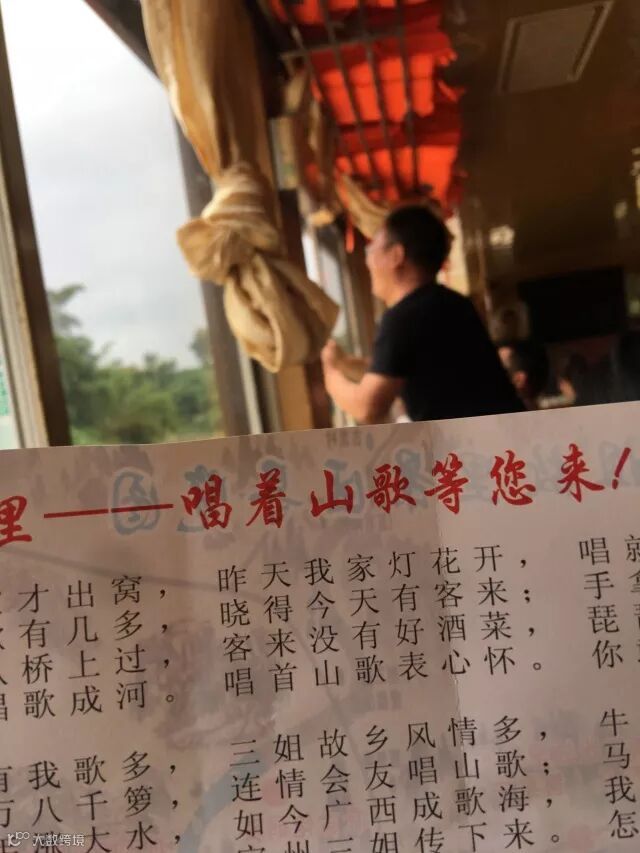 里——唱着山歌等您来!
才出窝,
有几多,
桥上过,
唱歌成河。
昨天我家灯花开,
晓得今天有客来;
客来没有好酒菜,
唱首山歌表心怀。
唱就
手拿
琵琶
你
有我歌多,
万八千箩,
大水,
三姐故乡风情多,
连情会友唱山歌;
如今广西成歌海,
州三姐传下来。
牛
马
我
怎
大数跨境